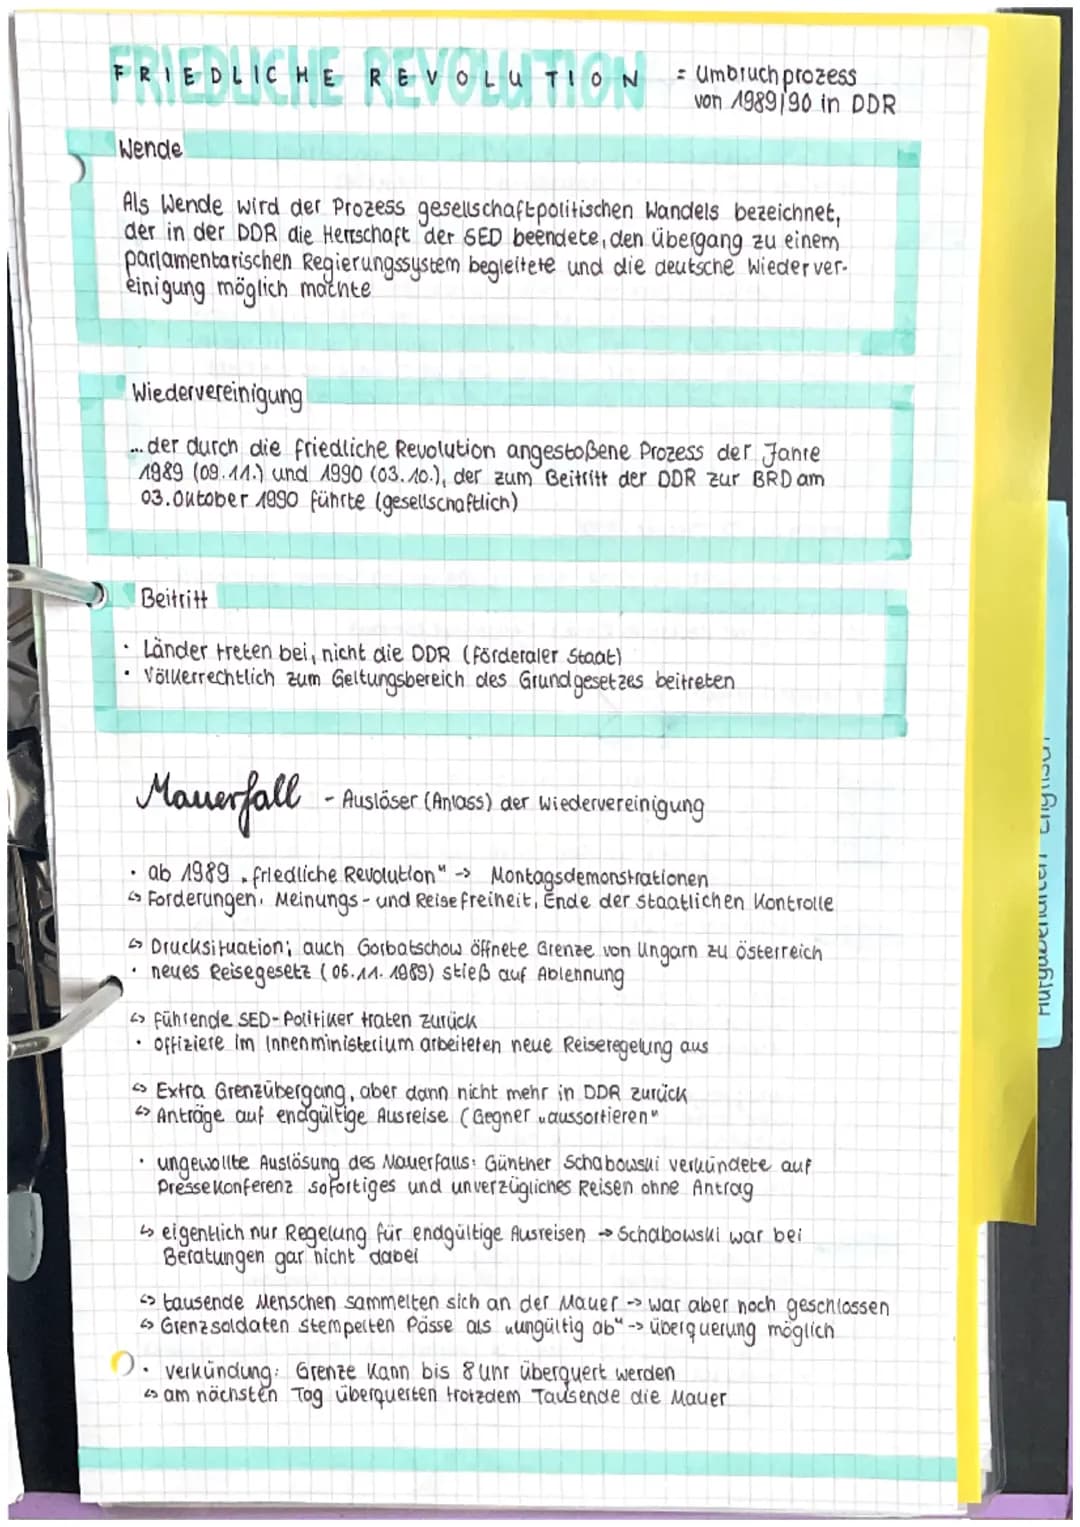 FRIEDLICHE REVOLUTION = Umbruchprozess
von 1989/90 in DDR
Wende
Als Wende wird der Prozess gesellschaftpolitischen Wandels bezeichnet,
der in der DDR die Herrschaft der SED beendete, den Übergang zu einem
parlamentarischen Regierungssystem begleitete und die deutsche Wiederver-
einigung möglich machte
Wiedervereinigung
... der durch die friedliche Revolution angestoßene Prozess der Jahre
1989 (09.11.) und 1990 (03.10.), der zum Beitritt der DDR zur BRD am
03. Oktober 1990 führte (gesellschaftlich)
Beitritt
· Länder treten bei, nicht die DDR (förderaler Staat)
· Völkerrechtlich zum Geltungsbereich des Grundgesetzes beitreten
Mauerfall - Auslöser (Anlass) der Wiedervereinigung
· ab 1989 „friedliche Revolution" -> Montagsdemonstrationen
↳ Forderungen: Meinungs- und Reisefreiheit, Ende der staatlichen Kontrolle
↳ Drucksituation; auch Gorbatschow öffnete Grenze von Ungarn zu Österreich
· neues Reisegesetz (06.11.1989) stieß auf Ablehnung
↳ führende SED-Politiker traten zurück
· Offiziere im Innenministerium arbeiteten neue Reiseregelung aus
↳ Extra Grenzübergang, aber dann nicht mehr in DDR zurück
↳ Anträge auf endgültige Ausreise (Gegner „aussortieren"
· ungewollte Auslösung des Mauerfalls: Günther Schabowski verkündete auf
Pressekonferenz sofortiges und unverzügliches Reisen ohne Antrag
↳ eigentlich nur Regelung für endgültige Ausreisen -> Schabowski war bei
Beratungen gar nicht dabei
↳ tausende Menschen sammelten sich an der Mauer -> war aber noch geschlossen
↳ Grenzsoldaten stempelten Pässe als „ungültig ab" -> Überquerung möglich
· Verkündung: Grenze kann bis 8 Uhr überquert werden
↳ am nächsten Tag überquerten trotzdem Tausende die Mauer